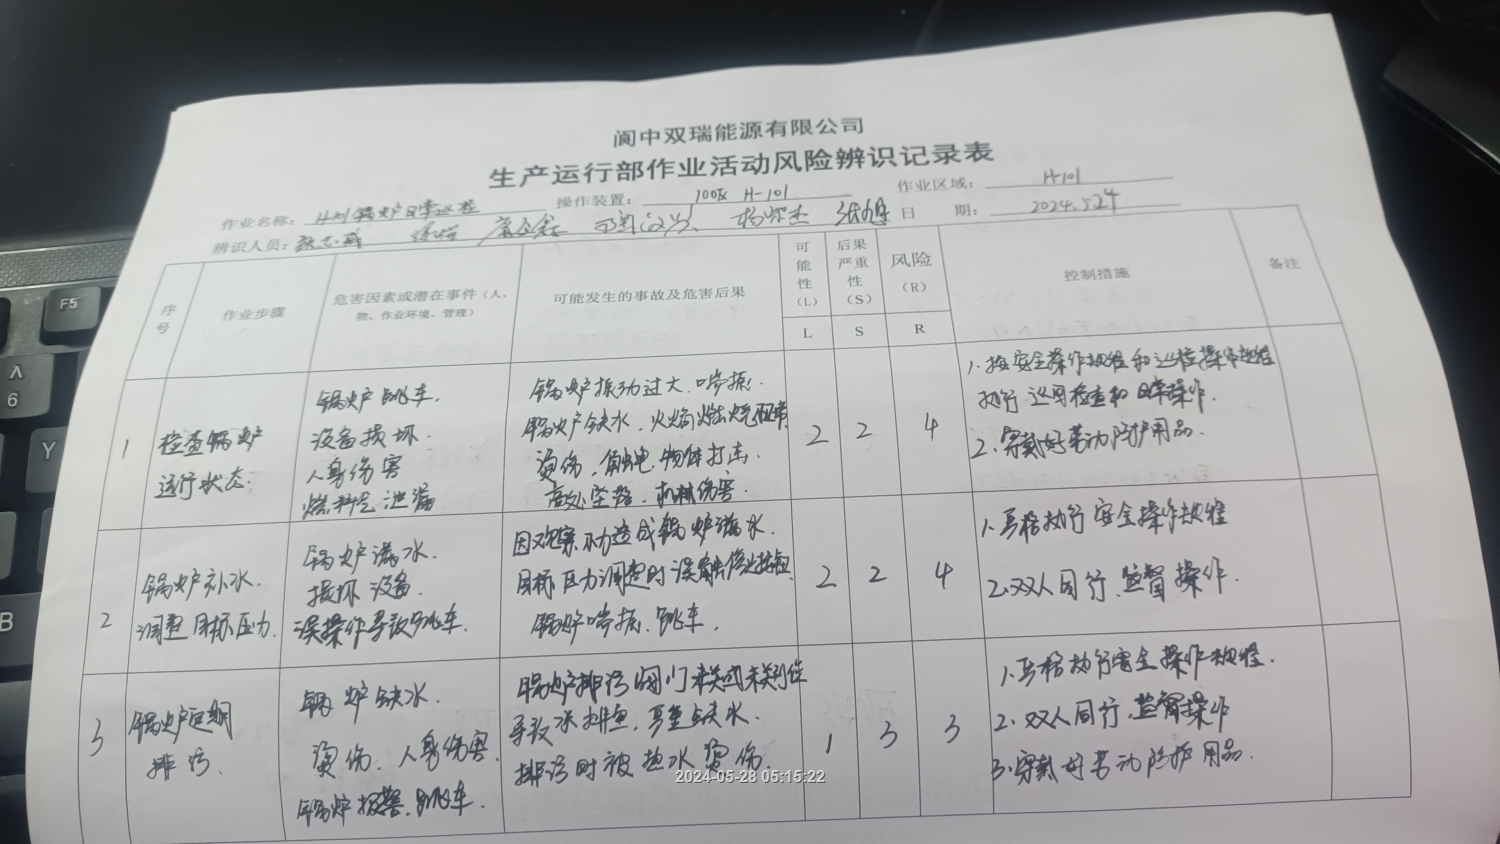 阆中双瑞能源有限公司
生产运行部作业活动风险辨识记录表
作业名称: 锅炉日常巡检 操作装置: 100区 H-101 作业区域: H-101
辨识人员: 日 期: 2024.5.24
序号 作业步骤 危害因素或潜在事件(人、物、作业环境、管理) 可能发生的事故及危害后果 可能性(L) 后果严重性(S) 风险(R) 控制措施 备注
L S R
1
检查锅炉
运行状态.
锅炉跳车.
设备损坏.
人身伤害
燃料气泄漏
锅炉振动过大.喘振.
锅炉缺水,火焰燃烧异常
烫伤,触电.物体打击.
高处坠落.机械伤害.
2 2 4
1.按安全操作规程和巡检操作规程
执行巡回检查和日常操作.
2.穿戴好劳动防护用品.
2
锅炉补水.
调整目标压力.
锅炉满水.
损坏设备.
误操作导致跳车.
因观察不力造成锅炉满水.
目标压力调整时误触停止按钮
锅炉喘振.跳车.
2 2 4
1.严格执行安全操作规程
2.双人同行.监督操作.
3
锅炉定期
排污、
锅炉缺水.
烫伤.人身伤害.
锅炉报警.跳车.
锅炉排污阀门未关或未关到位
导致水排空,严重缺水.
排污时被热水烫伤.
1 3 3
1.严格执行安全操作规程.
2.双人同行.监督操作
3.穿戴好劳动防护用品.
F5
6
Y
B
2024-05-28 05:15:22